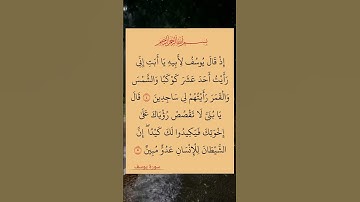 بسم الله الرحمن الرحيم
إِذْ قَالَ يُوسُفُ لِأَبِيهِ يَا أَبَتِ إِنِّي
رَأَيْتُ أَحَدَ عَشَرَ كَوْكَبًا وَالشَّمْسَ
وَالْقَمَرَ رَأَيْتُهُمْ لِي سَاجِدِينَ ٤ قَالَ
يَا بُنَيَّ لَا تَقْصُصْ رُؤْيَاكَ عَلَىٰ
إِخْوَتِكَ فَيَكِيدُوا لَكَ كَيْدًا ۖ إِنَّ
الشَّيْطَانَ لِلْإِنْسَانِ عَدُوٌّ مُبِينٌ ٥
سورة يوسف